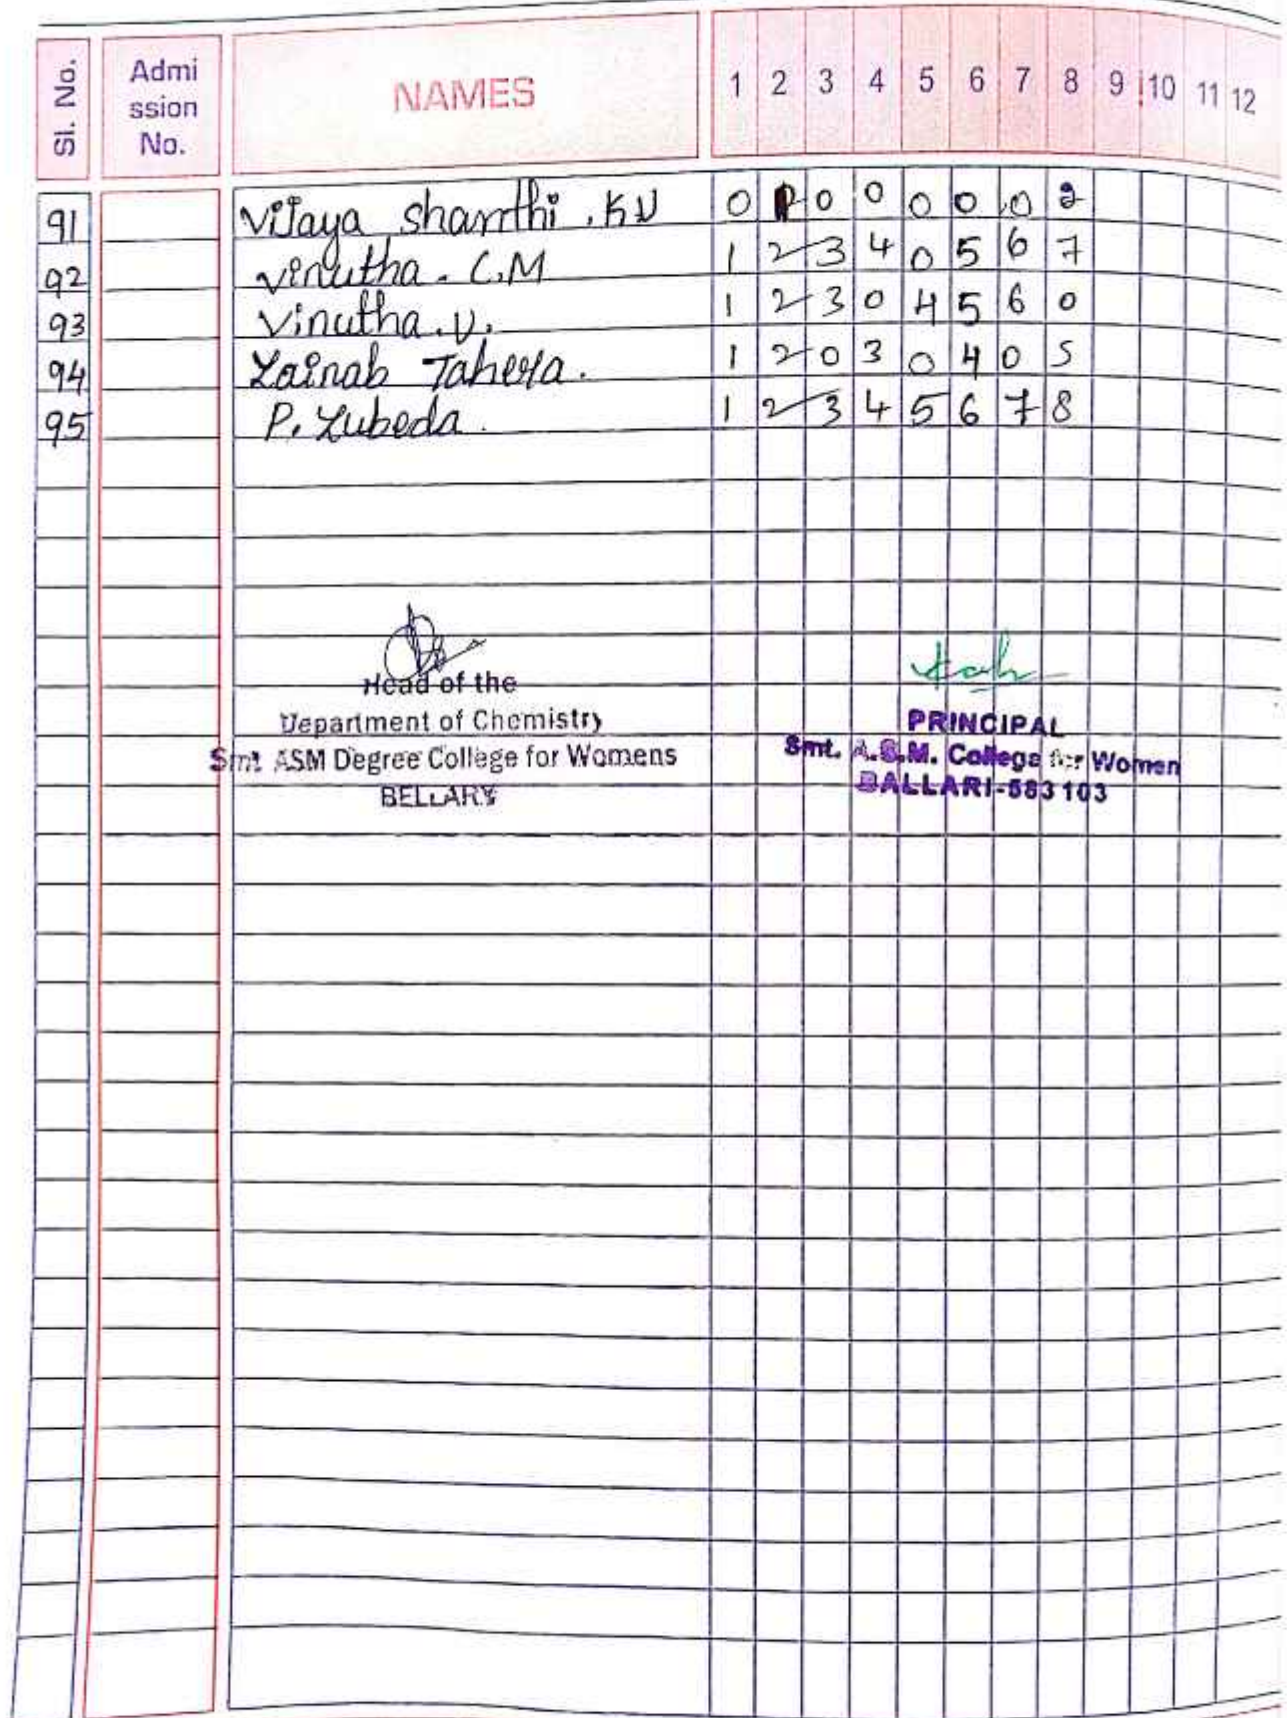 Sl. No. Admi ssion No. NAMES 1 2 3 4 5 6 7 8 9 10 11 12
91 Vijaya shanthi . KV 0 0 0 0 0 0 2
92 Vinutha. C.M 1 2 3 4 0 5 6 7
93 Vinutha.V. 1 2 3 0 4 5 6 0
94 Zainab Tahera. 1 2 0 3 0 4 0 5
95 P. Zubeda. 1 2 3 4 5 6 7 8
Head of the
Department of Chemistry
Smt ASM Degree College for Womens
BELLARY
PRINCIPAL
Smt. A.S.M. College for Women
BALLARI-583 103